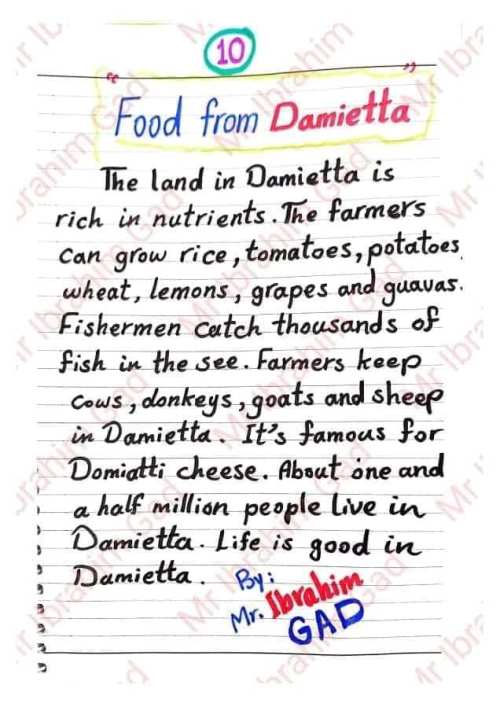 10
"Food from Damietta"
The land in Damietta is
rich in nutrients. The farmers
can grow rice, tomatoes, potatoes,
wheat, lemons, grapes and guavas.
Fishermen catch thousands of
fish in the see. Farmers keep
cows, donkeys, goats and sheep
in Damietta. It's famous for
Domiatti cheese. About one and
a half million people live in
Damietta. Life is good in
Damietta.
By:
Mr. Ibrahim
GAD
Mr Ibrahim Gad